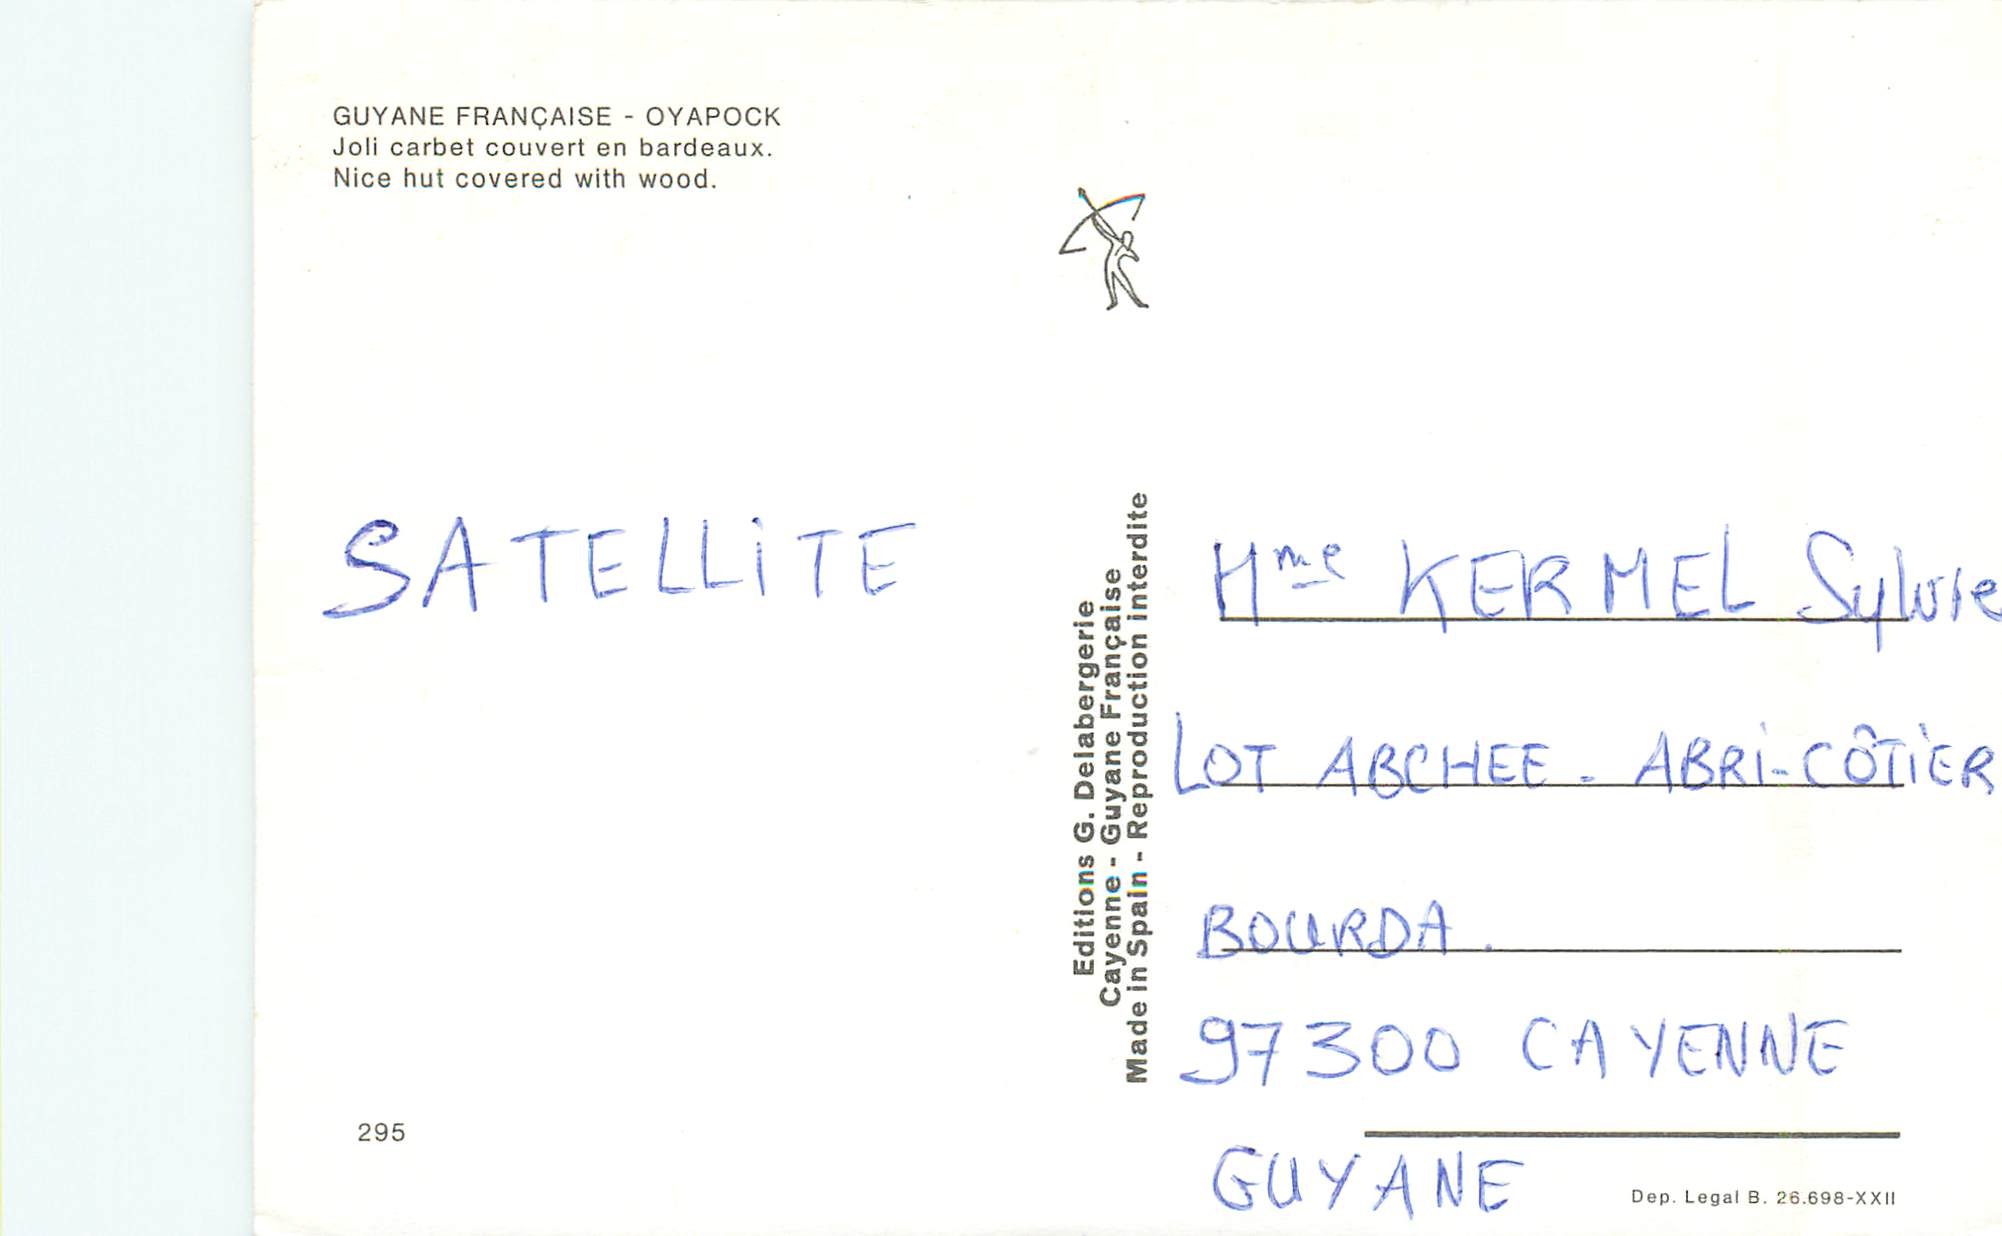 GUYANE FRANÇAISE - OYAPOCK
Joli carbet couvert en bardeaux.
Nice hut covered with wood.
SATELLITE
295
Editions G. Delabergerie
Cayenne - Guyane Française
Made in Spain - Reproduction interdite
Mme KERMEL Sylvie
LOT ABCHEE. ABRI-CÔTIER
BOURDA.
97300 CAYENNE
GUYANE
Dep. Legal B. 26.698-XXII